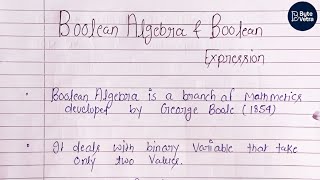 Boolean Algebra & Boolean
Expression
Byte
Vetra
• Boolean Algebra is a branch of Mathmetics
developed by George Boole (1854)
• It deals with binary Variable that take
only two Values.